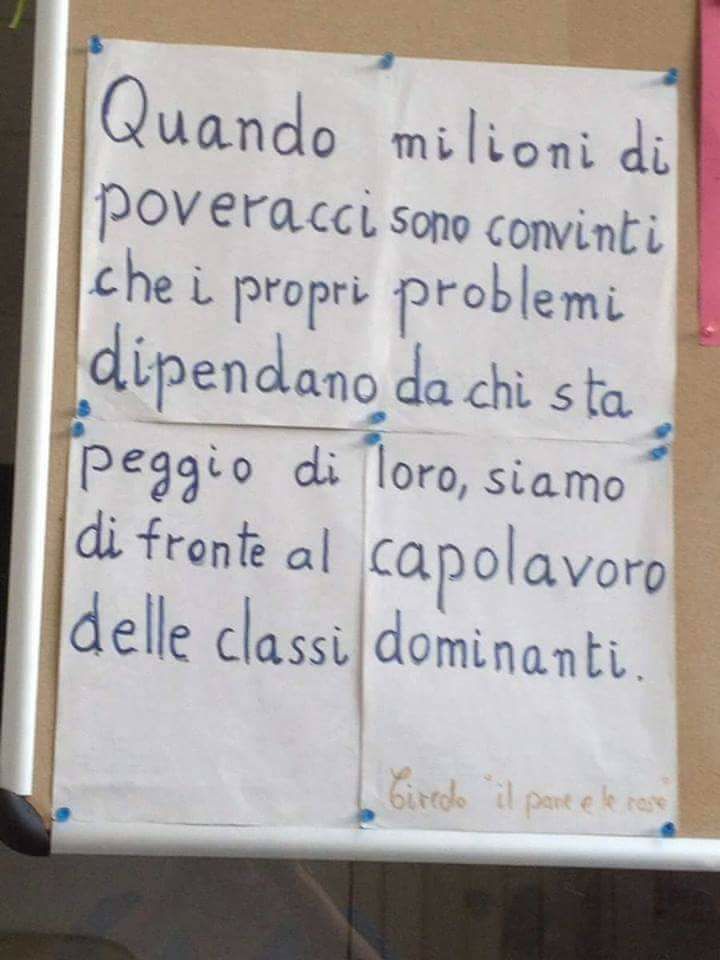 Quando milioni di
poveracci sono convinti
che i propri problemi
dipendano da chi sta
peggio di loro, siamo
di fronte al capolavoro
delle classi dominanti.
"il pane e le rose"